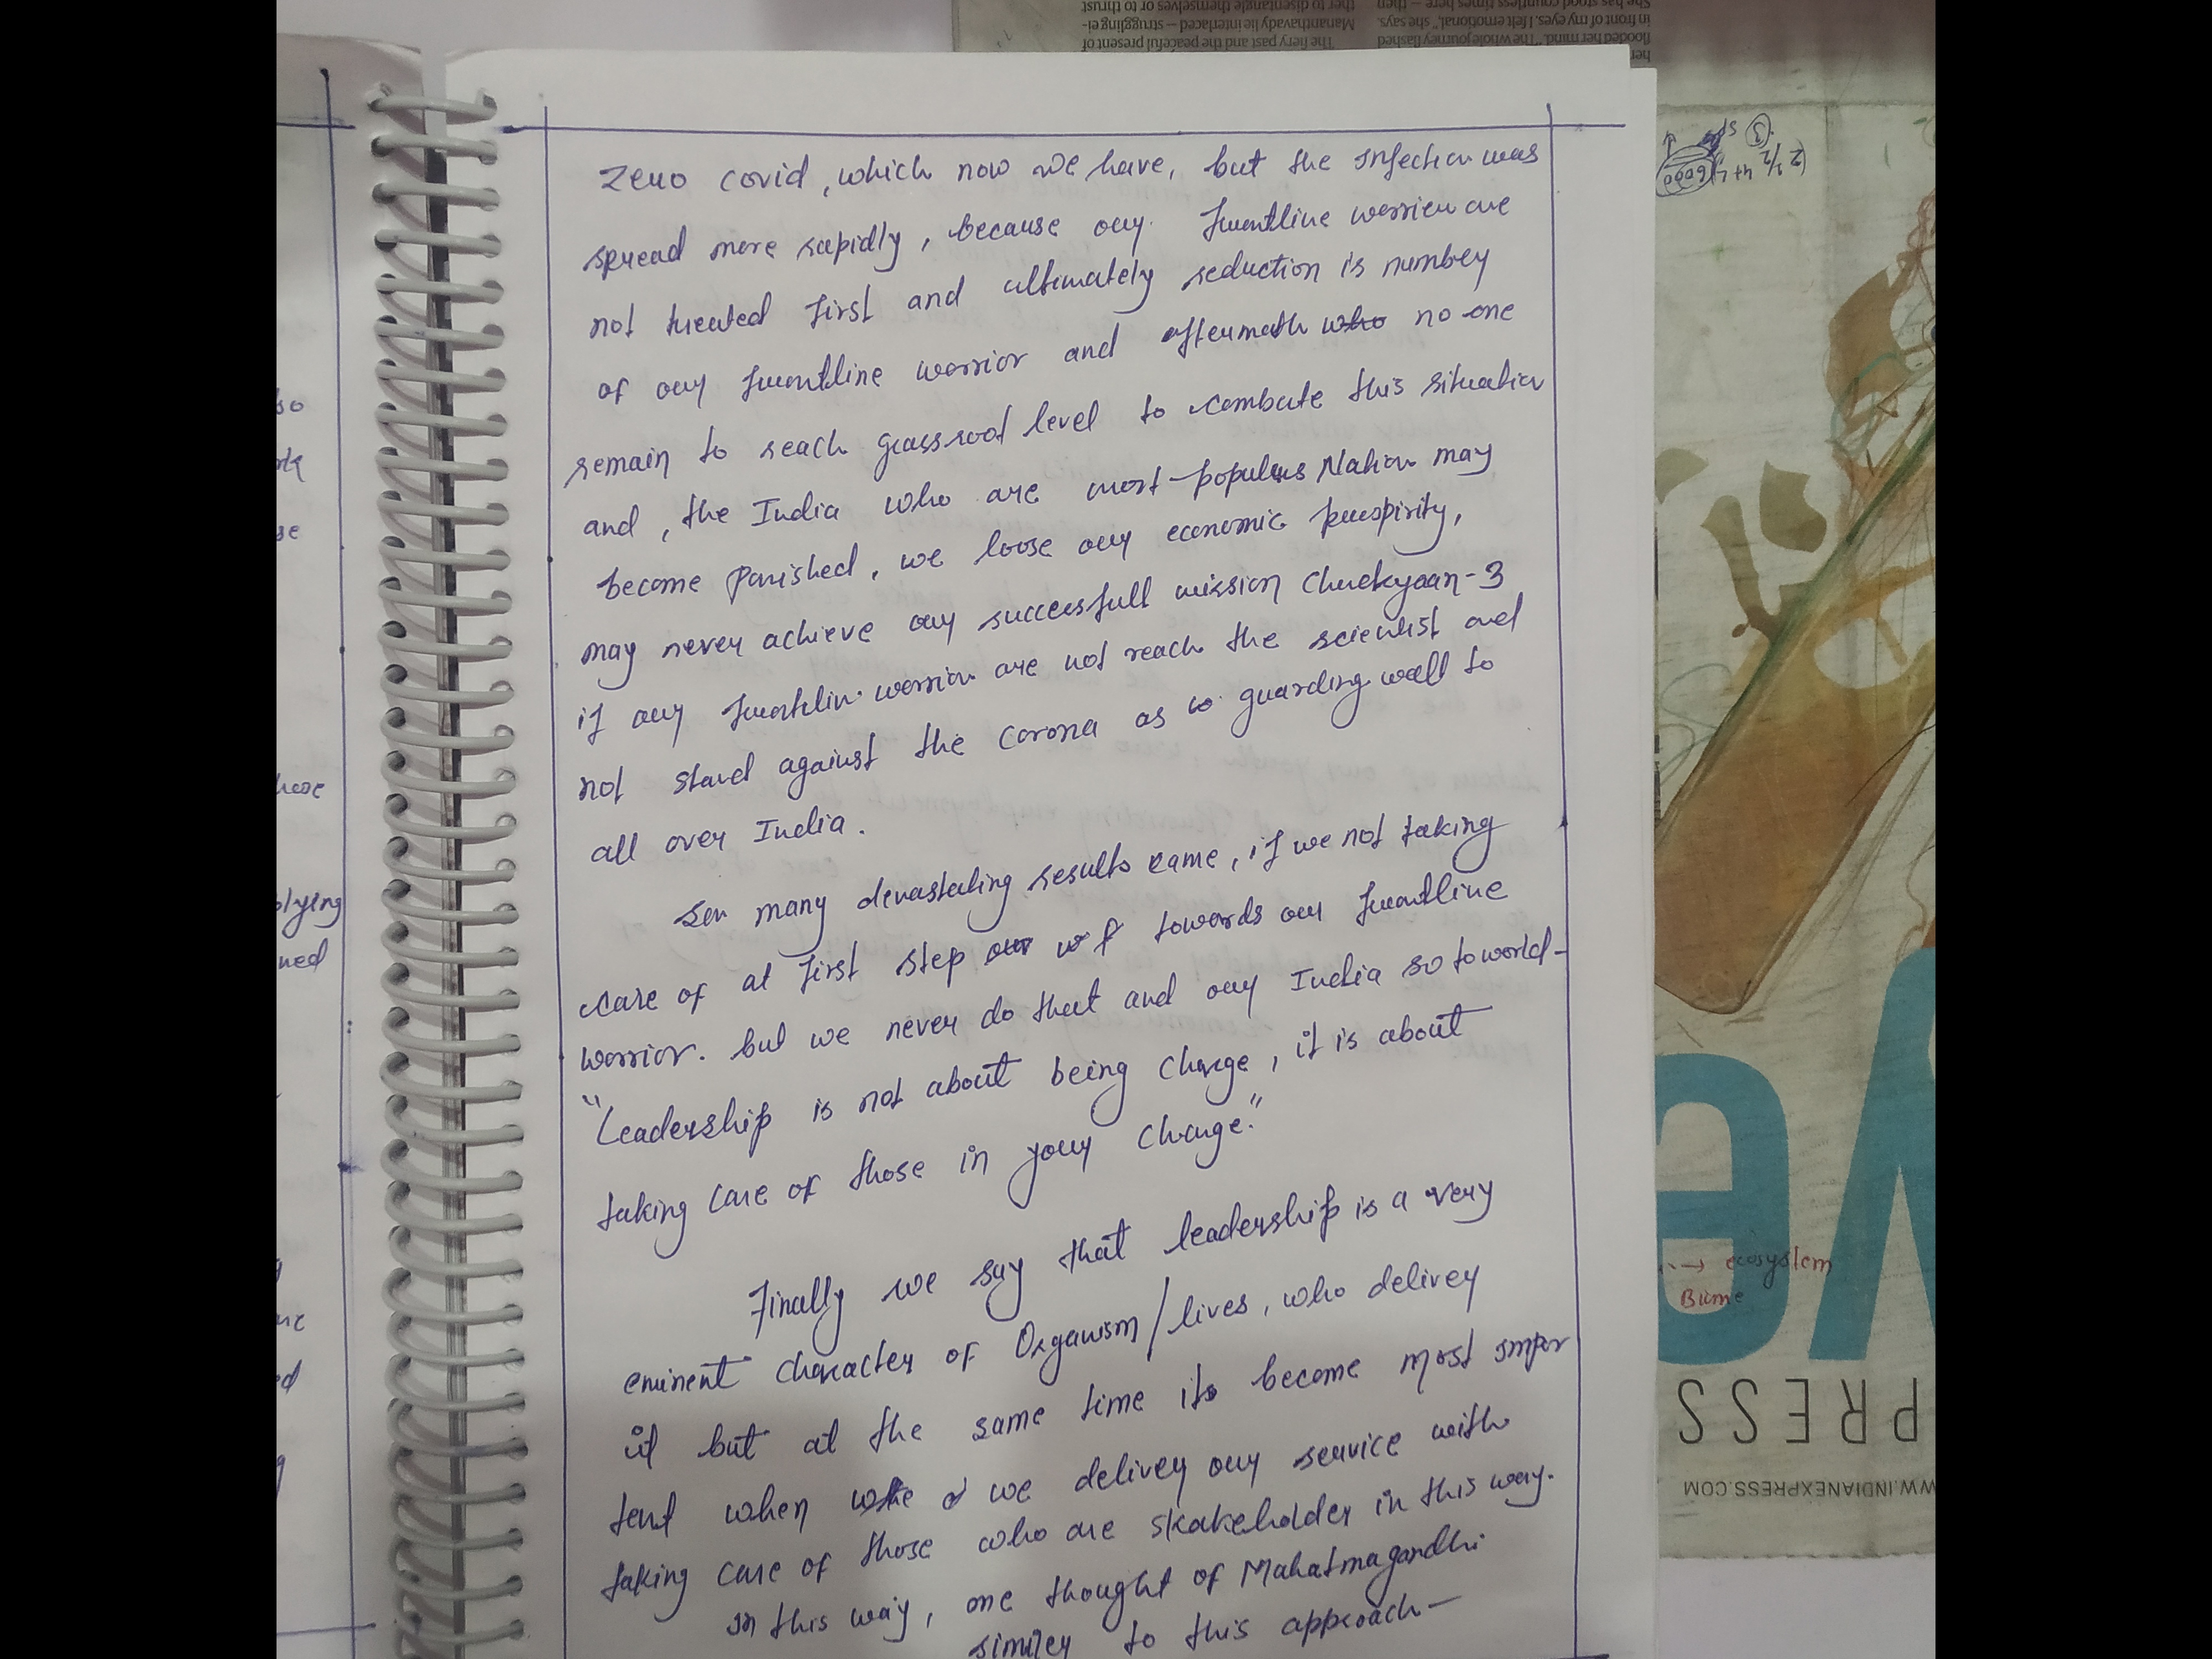 her
flooded her mind. "The whole journey flashed
in front of my eyes. I felt emotional," she says.
She has stood countless times here — then
The fiery past and the peaceful present of
Mananthavady lie interlaced — struggling ei-
ther to disentangle themselves or to thrust
zero covid, which now we have, but the Infection was
spread more rapidly, because our frontline warrior are
not treated first and ultimately reduction is number
of our frontline warrior and aftermath who no one
remain to reach grassroot level to combate this situation
and, the India who are most populus Nation may
become Parished, we loose our economic prospirity,
may never achieve our successfull mission
Chadryaan-3
if our frontlin warrior are not reach the scientist and
not stand against the corona as guarding wall to
all over India.
many devastating results came, if we not taking
care of at first step our towards our frontline
warrior. but we never do that and our India so to world-
"Leadership is not about being charge, it is about
taking care of those in your charge."
Finally we say that leadership is a very
eminent character of Organism/lives, who deliver
it but at the same time its become most impor
tent when we deliver our service with
taking care of those who are stakeholder in this way.
In this way, one thought of Mahatmagandhi
similer to this approach—
so
rk
se
hese
plying
ned
ne
ed
g
6000
→ ecosystem
Biome
PRESS
WW.INDIANEXPRESS.COM